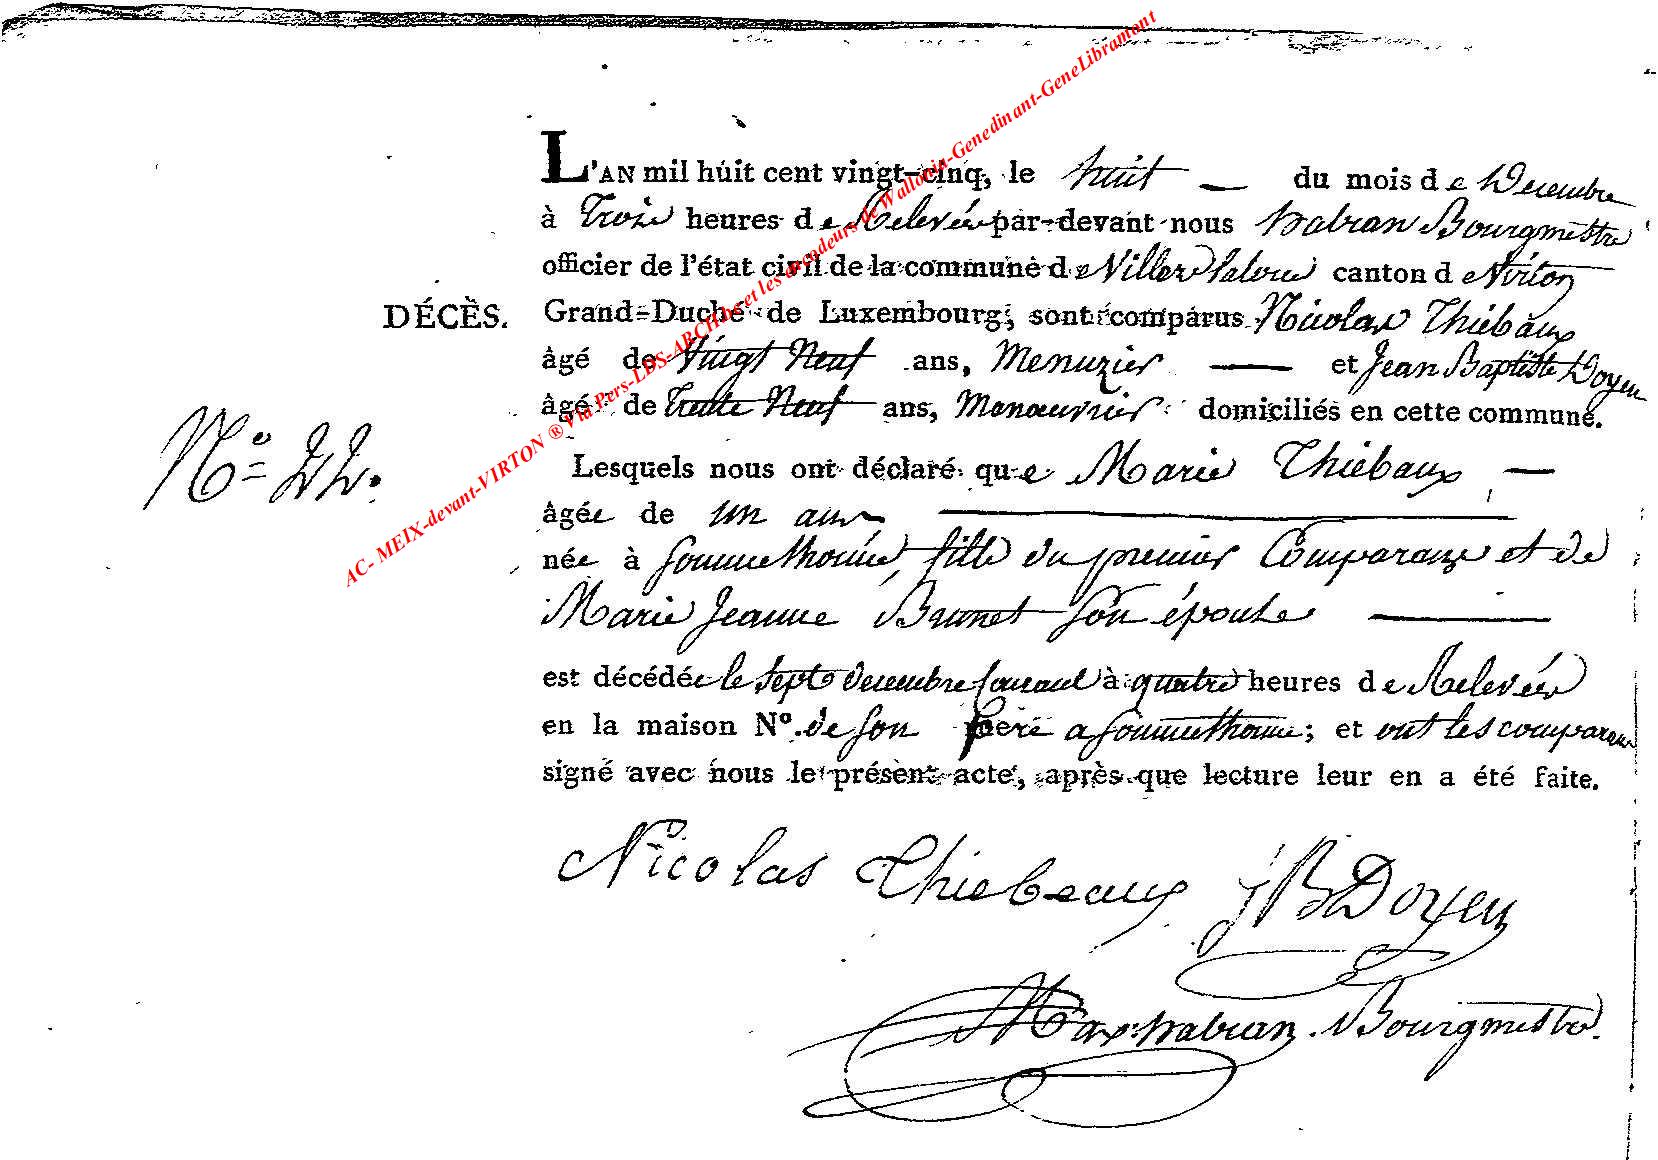 L'AN mil huit cent vingt-cinq, le huit du mois de Decembre
à Trois heures de Relevée par-devant nous habran Bourgmestre
officier de l'état civil de la commune de Viller laloue canton de Virton
DÉCÈS. Grand-Duché de Luxembourg, sont comparus Nicolas Thiébaux
âgé de Vingt Neuf ans, Menuzier et Jean Baptiste Doyen
âgé de Trente Neuf ans, Manoeuvrier domiciliés en cette commune.
Nº 22.
Lesquels nous ont déclaré que Marie Thiébaux
âgée de un an
née à Sommethonne, fille du premier Comparant et de
Marie Jeanne Brunet son épouse
est décédée le sept decembre courant à quatre heures de Relevée
en la maison Nº. de son père a Sommethonne; et ont les comparans
signé avec nous le présent acte, après que lecture leur en a été faite.
Nicolas Thiebeaux JB Doyen
Max habran Bourgmestre.
AC- MEIX-devant-VIRTON ® Via Pers-LDS-ARCH be et les arcadeurs de Wallonia-Genedinant-GeneLibramont